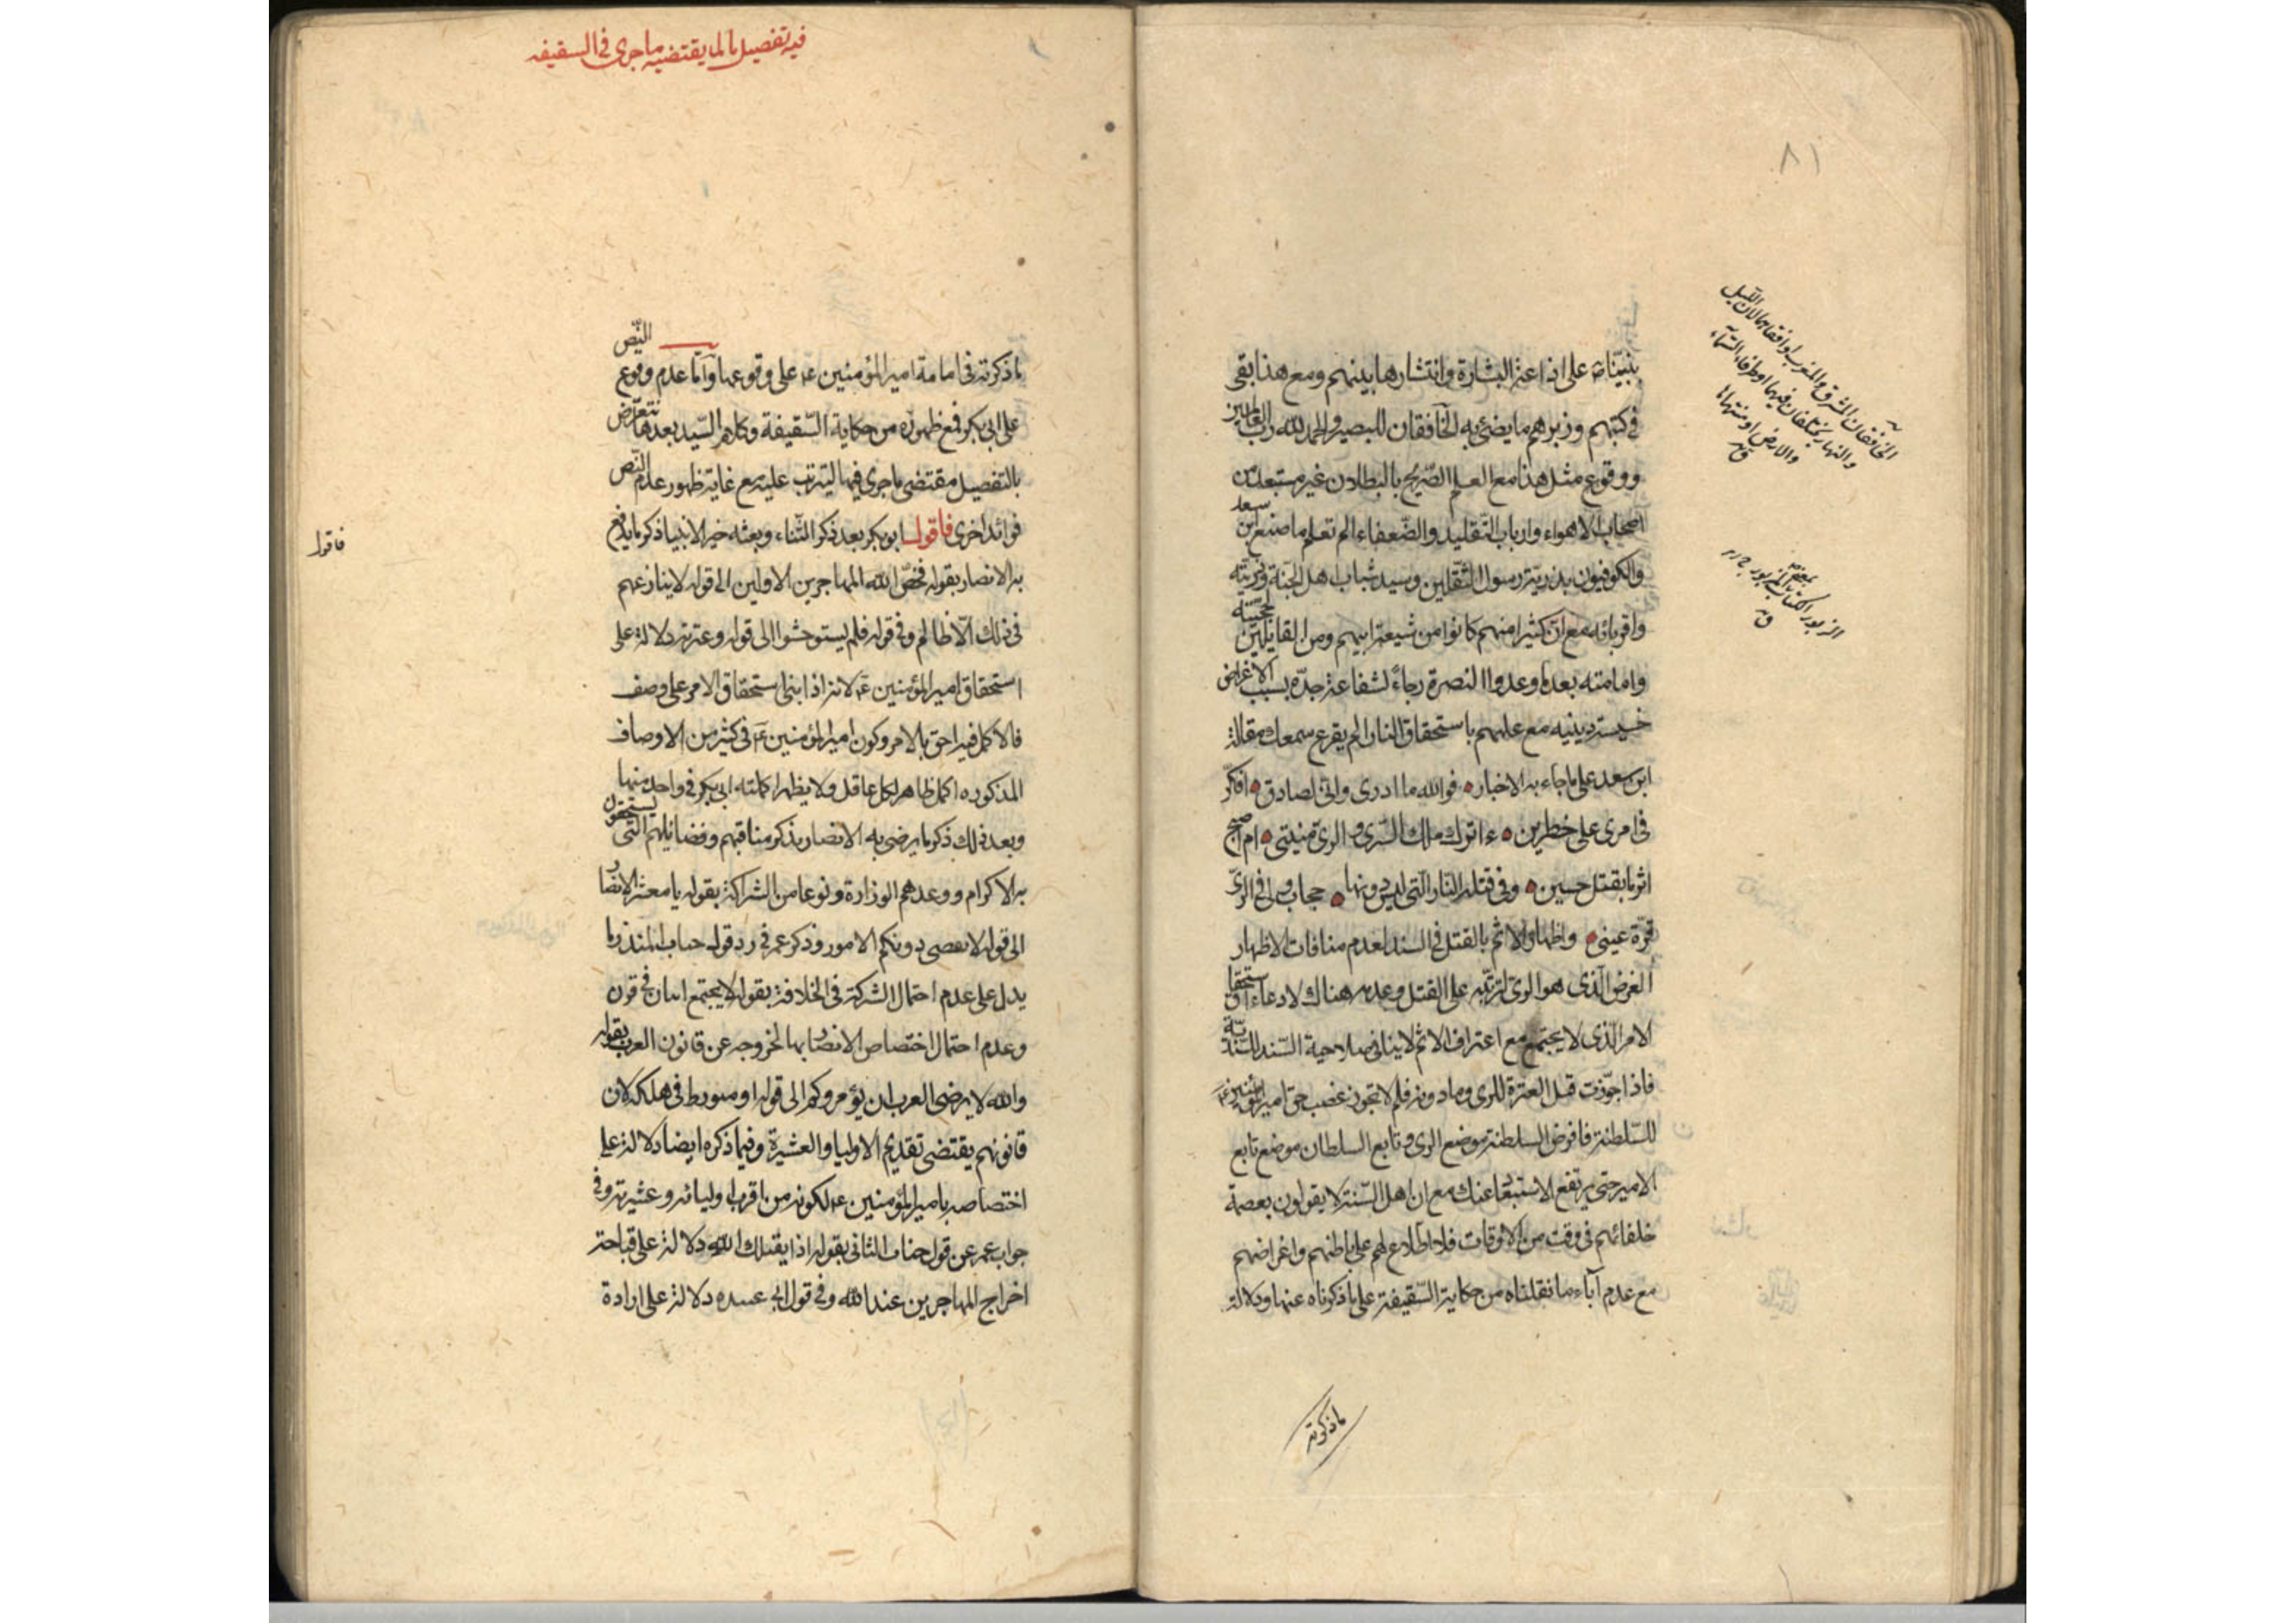 ٨١
بنبيّنا ص على اذاعة البشارة وانتشارها بينهم ومع هذا بقى
فى كتبهم وزبرهم ما يضئ به الخافقان للبصير والحمد لله رب العالمين
ووقوع مثل هذا مع العلم الصّريح بالبطلان غير مستبعد من
اصحاب الاهواء وارباب التّقليد والضّعفاء الم تعلم ما صنع ابن سعد
والكوفيون بذريّة رسول الثّقلين وسيد شباب اهل الجنة وذريّته
واقربائه مع انّ كثيرا منهم كانوا من شيعة ابيهم ومن القايلين بحجيّته
وامامته بعده وعدوا النصرة رجاءً لشفاعة جدّه بسبب الاغراض
خسيسة دينيه مع علمهم باستحقاق النار الم يقرع سمعك مقالة
ابن سعد على ما جاء به الاخبار • فوالله ما ادرى وانّى لصادق • افكّر
فى امرى على خطرين • ءاترك ملك الرّى والرىّ منيتى • ام اصبح
اثرما بقتل حسين • وفى قتله النّار الّتى ليس دونها • حجاب ولى فى الرىّ
قرّة عينى • واظهار الاثم بالقتل فى السند لعدم منافات الاظهار
الغرض الّذى هو الرىّ لترتّبه على القتل وعدمه هناك لادعاء استحقاق
الامر الّذى لا يجتمع مع اعتراف الاثم لا ينافى صلاحية السّند للسّنديّة
فاذا جوّزت قتل العترة للرى وما دونه فلم لا تجوز غصب حق امير المؤمنين ع
للسّلطنة فافرض السلطنة موضع الرى وتابع السلطان موضع تابع
الامير حتى يرتفع الاستبعاد عنك مع ان اهل السّنة لا يقولون بعصمة
خلفائهم فى وقت من الاوقات فلا اطّلاع لهم على باطنهم واغراضهم
مع عدم آباء ما نقلناه من حكاية السّقيفة على ما ذكرناه عنها ودلالة
ما ذكرته
الخافقان المشرق والمغرب او افقاهما لان الليل
والنهار يختلفان فيهما او طرفا السّماء
والارض او منتهاها
ق
الزبور الكتاب بمعنى المزبور ج زبر
ق
فيه تفصيل ما لما يقتضيه ما جرى فى السقيفه
ما ذكرته فى امامة امير المؤمنين ع على وقوعها وآمّا عدم وقوع النّص
على ابى بكر فمع ظهوره من حكاية السّقيفة وكلام السّيد بعدها نتعرّض
بالتفصيل مقتضى ما جرى فيها ليترتب عليه مع غاية ظهور عدم النّص
فوائد اخرى فاقول ابو بكر بعد ذكر الثّناء وبعثه خير الانبيا ذكر ما يدفع
به الانصار بقوله فخصّ الله المهاجرين الاولين الى قوله لا ينازعهم
فى ذلك الّا ظالم وفى قوله فلم يستوحشوا الى قوله وعترته دلالة على
استحقاق امير المؤمنين ع لانه اذا ابنى استحقاق الامر على وصف
فالاكمل فيه احق بالامر وكون امير المؤمنين ع فى كثير من الاوصاف
المذكوره اكمل ظاهر لكل عاقل ولا يظهر اكملته ابى بكر فى واحد منها
وبعد ذلك ذكر ما يرضى به الانصار بذكر مناقبهم وفضائلهم التّى يستحقون
به الاكرام ووعدهم الوزارة ونوعا من الشراكة بقوله يا معشر الانصار
الى قوله لا نقضى دونكم الامور وذكر عمر فى رد قوله حباب المنذر ما
يدل على عدم احتمال الشركة فى الخلافة بقوله لا يجتمع اثنان فى قرن
وعدم احتمال اختصاص الانصار بها لخروجه عن قانون العرب بقوله
والله لا يرضى العرب ان يؤمروكم الى قوله او متورط فى هلكة لان
قانونهم يقتضى تقديم الاوليا والعشيرة وفيما ذكره ايضا دلالة على
اختصاصه بامير المؤمنين ع لكونه من اقرب اوليائه وعشيرته وفى
جواب عمر عن قول حباب الثانى بقوله اذا يقتلك الله دلالة على قباحة
اخراج المهاجرين عند الله وفى قول ابى عبيده دلالة على ارادة
فاقول